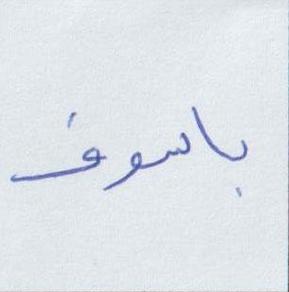 باسوف